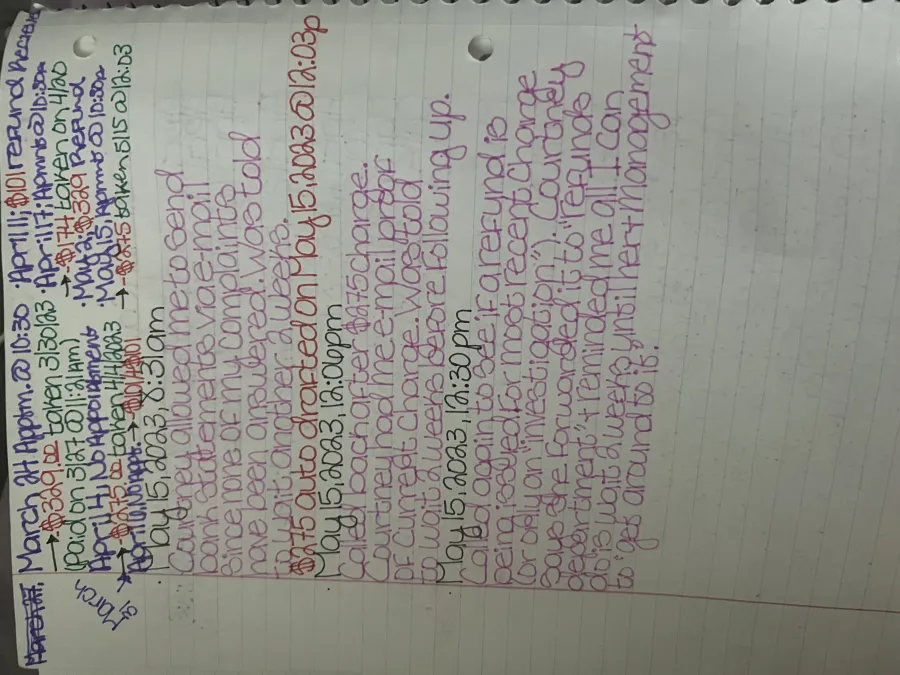 March 24 Apptm. @ 10:30
→ $329.00 taken 3/30/23
(Paid on 3/27 @ 11:21am)
April 4; No Appointment
→ $275.00 taken 4/4/2023
March 31 → April 10, No Appt. → $101
• April 11; $101 refund
• April 17; Apmnt @ 10:30a
→ $174 taken on 4/20
• May 2; $329 Refund
• May 15, Apmnt @ 10:30a
→ $275 taken 5/15 @ 12:03
May 15, 2023, 8:31am
Courtney allowed me to send
bank statements via e-mail
since none of my complaints
have been answered. Was told
to wait another 2 weeks.
$275 auto drafted on May 15, 2023 @ 12:03p
May 15, 2023, 12:06pm
Called back after $275 charge.
Courtney had me e-mail proof
of current charge. Was told
to wait 2 weeks before following up.
May 15, 2023, 12:30pm
Called again to see if a refund is
being issued for most recent charge
(or only an "investigation"). Courtney
says she forwarded it to "refunds
department" + reminded me all I can
do is wait 2 weeks, until her + management
to "get around to it".